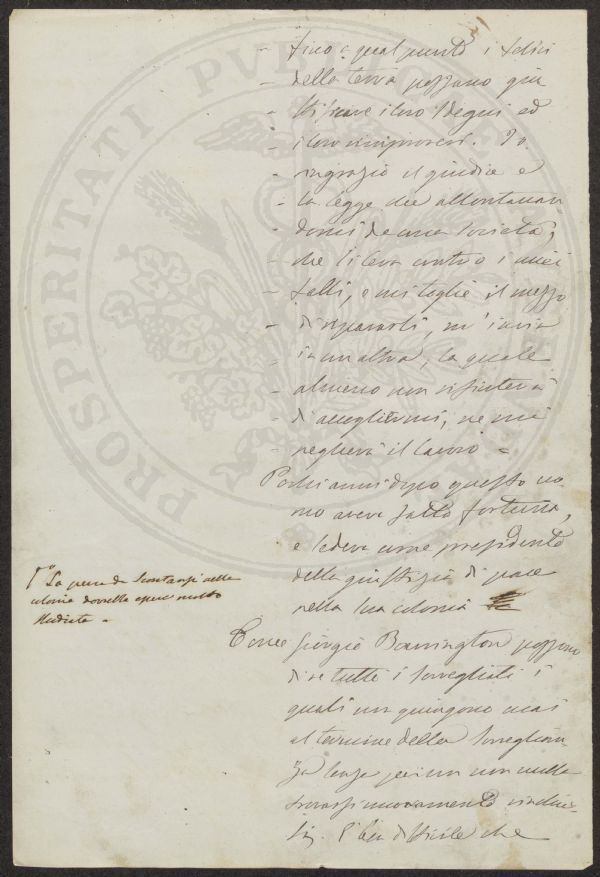 PROSPERITATI PUBLICAE
- fino a qual punto i felici
- della terra possano giu
- stificare i loro sdegni ed
- i loro rimproveri. Io
- ringrazio il giudice e
- la legge che allontanan
- domi da una società,
- che si leva contro i miei
- falli, e mi toglie il mezzo
- di ripararli, m'invia
- in un altra, la quale
- almeno non rifiuterà
- di accogliermi, ne mi
- negherà il lavoro =
Pochi anni dopo questo uo
mo aveva fatto fortuna,
e sedeva come presidente
della giustizia di pace
nella sua colonia
1° La pena da scontarsi nelle
colonie dovrebbe essere molto
studiata =
Come Giorgio Barrington possono
dire tutti i sorvegliati i
quali non giungono mai
al termine della sorveglian
za senza per un non nulla
trovarsi nuovamente
È ben difficile che